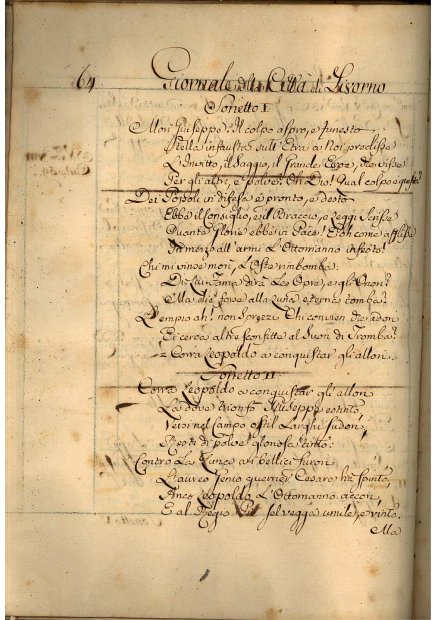 64 Giornale della Città di Livorno
Sonetto I
Morì Giuseppe: Il colpo aspro, e funesto
Stella infausta sull' Etra a Noi predisse
L'Invitto, il Saggio, il Grande Eroe, che visse
Per gli altri, è polve: Oh Dio! Qual colpo è questo!
Dei Popoli in difesa e pronto, e desto
Ebbe il Consiglio, e il Braccio, e Leggi scrisse
Quante Glorie ebbe in Pace! Ed oh come afflisse
In mezzo all' armi L'Ottomanno infesto!
Chi mi vinse morì, L'Oste rimbomba:
Di Lui Fama dirà Le Opre, e gli Onori
Ma che
L'Empio ah! non sprezzi Chi
Si cerca altre sconfitte al Suon di Tromba
= Corra Leopoldo a conquistar gli allori.
Sonetto II
Corra Leopoldo a conquistar gli allori
Là dove trionfò Giuseppe estinto
Veri nel Campo ostil Larghi sudori
di polve gloriosa tinto:
Contro La Luna a bellici furori
Laureo Genio Cesare ha spinto
Anco Leopoldo L'Ottomanno accori
E al Regio Piè sel vegga umile, e vinto.
Ma